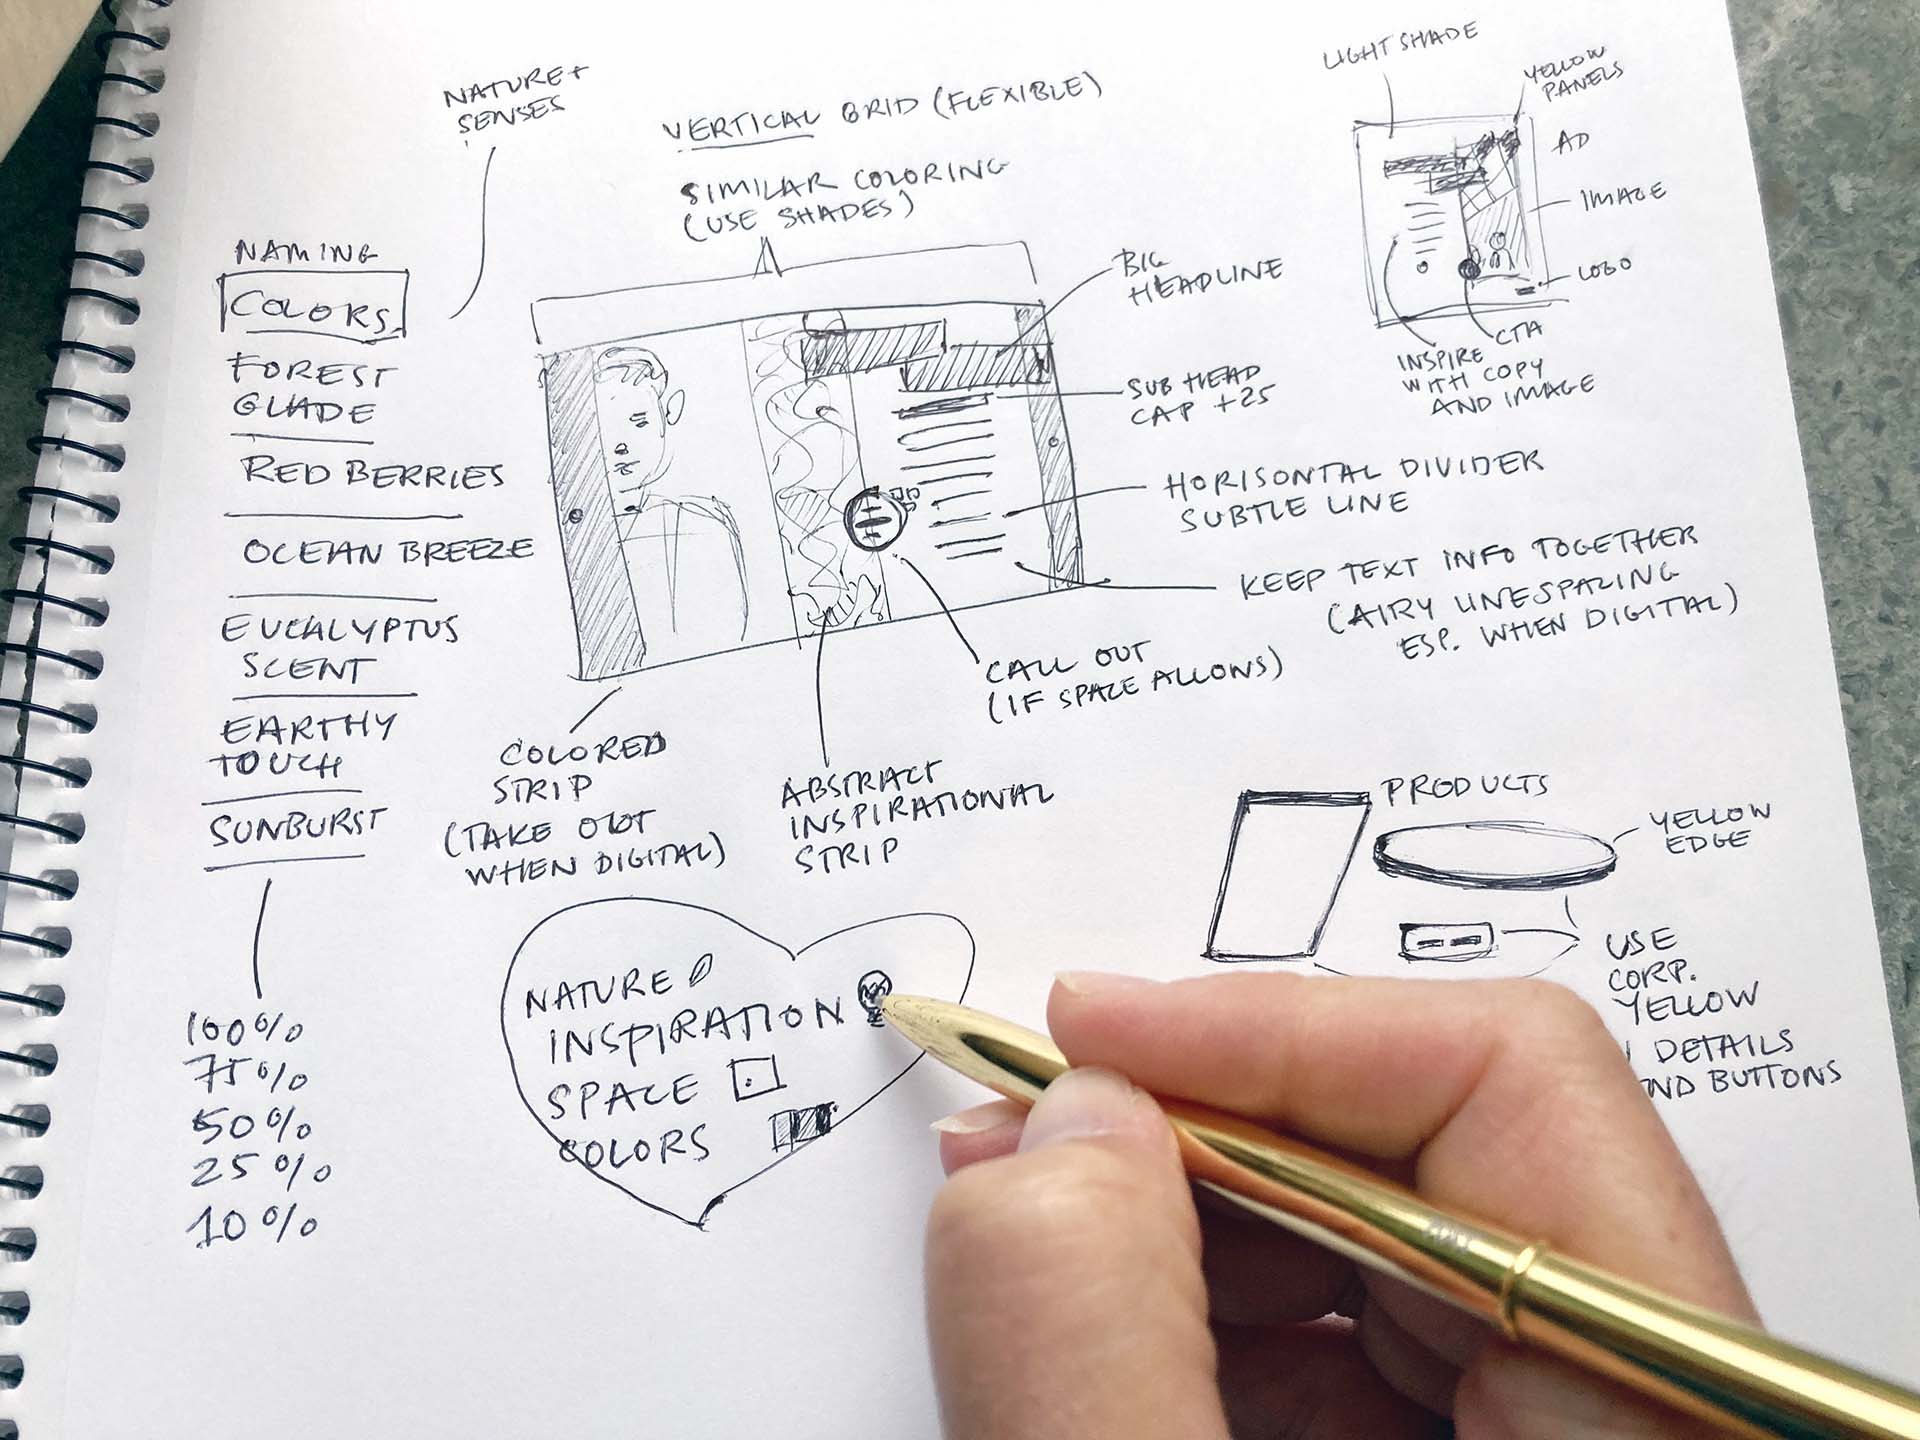 NATURE+
SENSES
VERTICAL GRID (FLEXIBLE)
SIMILAR COLORING
(USE SHADES)
LIGHT SHADE
YELLOW
PANELS
AD
IMAGE
LOGO
CTA
INSPIRE
WITH COPY
AND IMAGE
NAMING
COLORS
FOREST
GLADE
RED BERRIES
OCEAN BREEZE
EUCALYPTUS
SCENT
EARTHY
TOUCH
SUNBURST
100%
75%
50%
25%
10%
BIG
HEADLINE
SUB HEAD
CAP +25
HORISONTAL DIVIDER
SUBTLE LINE
KEEP TEXT INFO TOGETHER
(AIRY LINESPACING
ESP. WHEN DIGITAL)
CALL OUT
(IF SPACE ALLOWS)
COLORED
STRIP
(TAKE OUT
WHEN DIGITAL)
ABSTRACT
INSPIRATIONAL
STRIP
PRODUCTS
YELLOW
EDGE
USE
CORP.
YELLOW
DETAILS
BUTTONS
NATURE
INSPIRATION
SPACE
COLORS